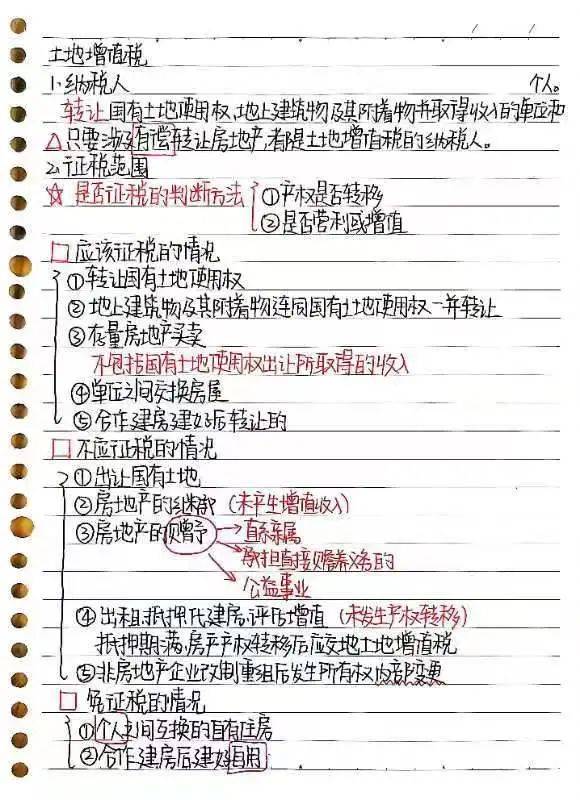 土地增值税
1.纳税人 个人。
转让国有土地使用权,地上建筑物及其附着物并取得收入的单位和
△只要涉及有偿转让房地产,都是土地增值税的纳税人。
2.征税范围
☆ 是否征税的判断方法 ①产权是否转移
②是否营利或增值
□ 应该征税的情况
①转让国有土地使用权
②地上建筑物及其附着物连同国有土地使用权一并转让
③存量房地产买卖
不包括国有土地使用权出让所取得的收入
④单位之间交换房屋
⑤合作建房建好后转让的
□ 不应征税的情况
①出让国有土地
②房地产的继承 (未产生增值收入)
③房地产的赠予 直系亲属
承担直接赡养义务的
公益事业
④出租,抵押,代建房,评估增值 (未发生产权转移)
抵押期满,房产产权转移后应交地土地增值税
⑤非房地产企业改制重组后发生所有权内部变更
□ 免征税的情况
①个人之间互换的自有住房
②合作建房后建好自用